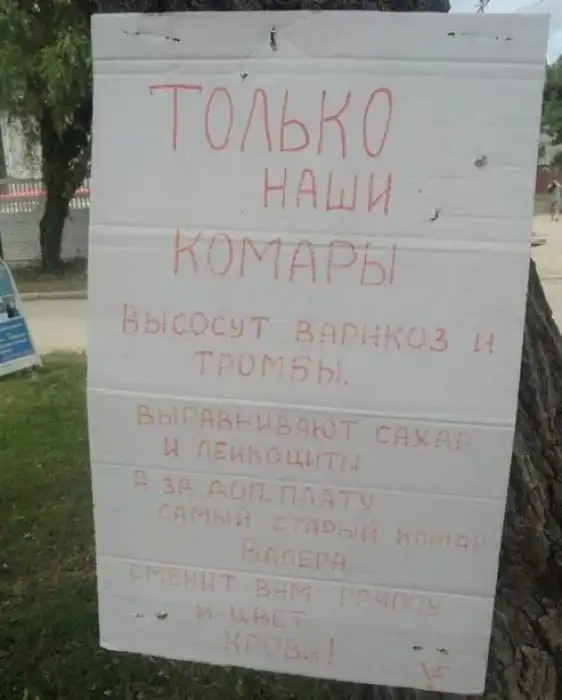 ТОЛЬКО
НАШИ
КОМАРЫ
ВЫСОСУТ ВАРИКОЗ И
ТРОМБЫ.
ВЫРАВНИВАЮТ САХАР
И ЛЕЙКОЦИТЫ
А ЗА ДОП. ПЛАТУ
САМЫЙ СТАРЫЙ КОМАР
ВАЛЕРА
СМЕНИТ ВАМ ГРУППУ
И ЦВЕТ
КРОВИ!